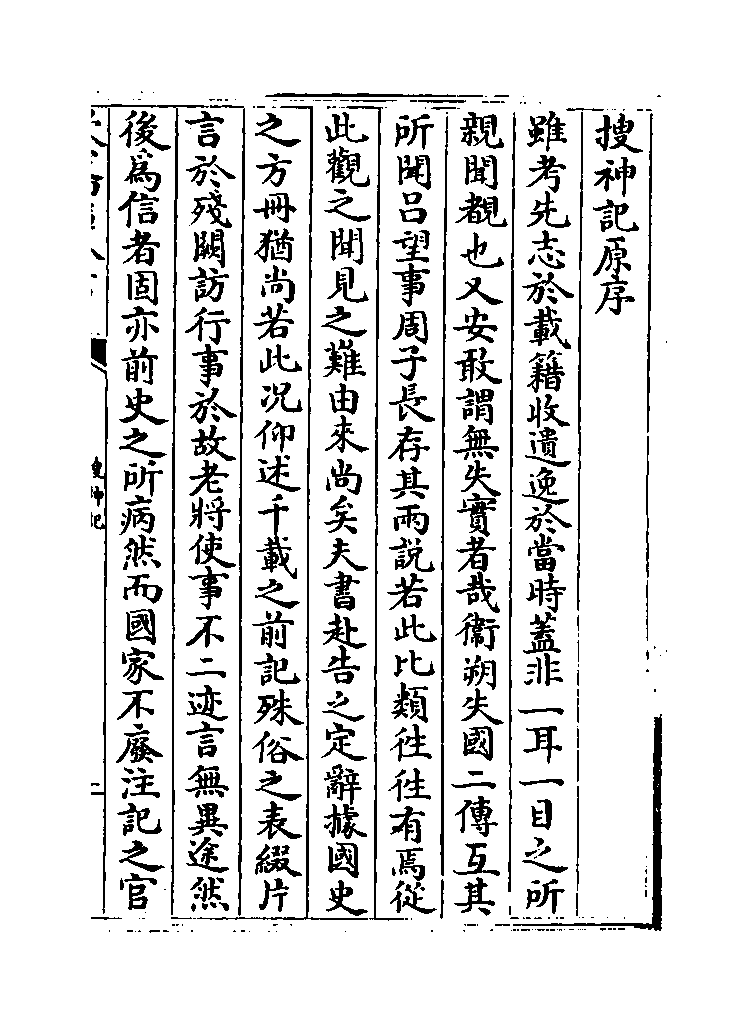 搜神記原序
雖考先志於載籍收遺逸於當時蓋非一耳一目之所
親聞覩也又安敢謂無失實者哉衞朔失國二傳互其
所聞吕望事周子長存其兩說若此比類徃徃有焉從
此觀之聞見之難由來尚矣夫書赴告之定辭據國史
之方冊猶尚若此况仰述千載之前記殊俗之表綴片
言於殘闕訪行事於故老將使事不二迹言無異途然
後為信者固亦前史之所病然而國家不廢注記之官
搜神記